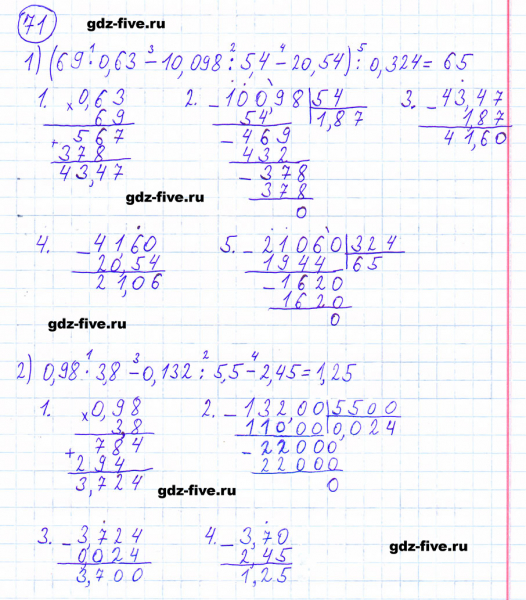 71
gdz-five.ru
1) (69 · 0,63 − 10,098 : 54 − 20,54) : 0,324 = 65
1 3 2 4 5
1. × 0,63 2. − 10098 | 54 3. − 43,47
69 54 1,87 1,87
+ 567 − 469 41,60
378 432
43,47 − 378
378
0
gdz-five.ru
4. − 41,60 5. − 21060 | 324
20,54 1944 65
21,06 − 1620
1620
0
gdz-five.ru
2) 0,98 · 3,8 − 0,132 : 5,5 − 2,45 = 1,25
1 3 2 4
1. × 0,98 2. − 132,00 | 5500
3,8 11000 0,024
+ 784 − 22000
294 22000
3,724 0
gdz-five.ru
3. − 3,724 4. − 3,70
0024 2,45
3,700 1,25
gdz-five.ru